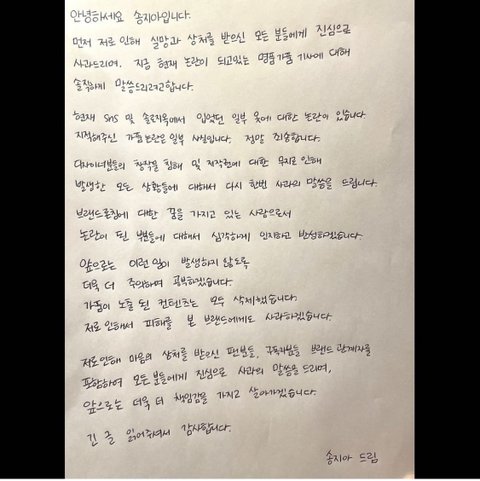 안녕하세요 송지아입니다.
먼저 저로 인해 실망과 상처를 받으신 모든 분들에게 진심으로
사과드리며, 지금 현재 논란이 되고있는 명품가품 기사에 대해
솔직하게 말씀드리려고합니다.
현재 SNS 및 솔로지옥에서 입었던 일부 옷에 대한 논란이 있습니다.
지적해주신 가품논란은 일부 사실입니다. 정말 죄송합니다.
디자이너분들의 창작물 침해 및 저작권에 대한 무지로 인해
발생한 모든 상황들에 대해서 다시 한번 사과의 말씀을 드립니다.
브랜드론칭에 대한 꿈을 가지고 있는 사람으로서
논란이 된 부분들에 대해서 심각하게 인지하고 반성하겠습니다.
앞으로는 이런 일이 발생하지 않도록
더욱 더 주의하며 공부하겠습니다.
가품이 노출 된 컨텐츠는 모두 삭제했습니다.
저로 인해서 피해를 본 브랜드에게도 사과하겠습니다.
저로인해 마음의 상처를 받으신 팬분들, 구독자님들 브랜드 관계자를
포함하여 모든 분들에게 진심으로 사과의 말씀을 드리며,
앞으로는 더욱 더 책임감을 가지고 살아가겠습니다.
긴 글 읽어주셔서 감사합니다.
송지아 드림